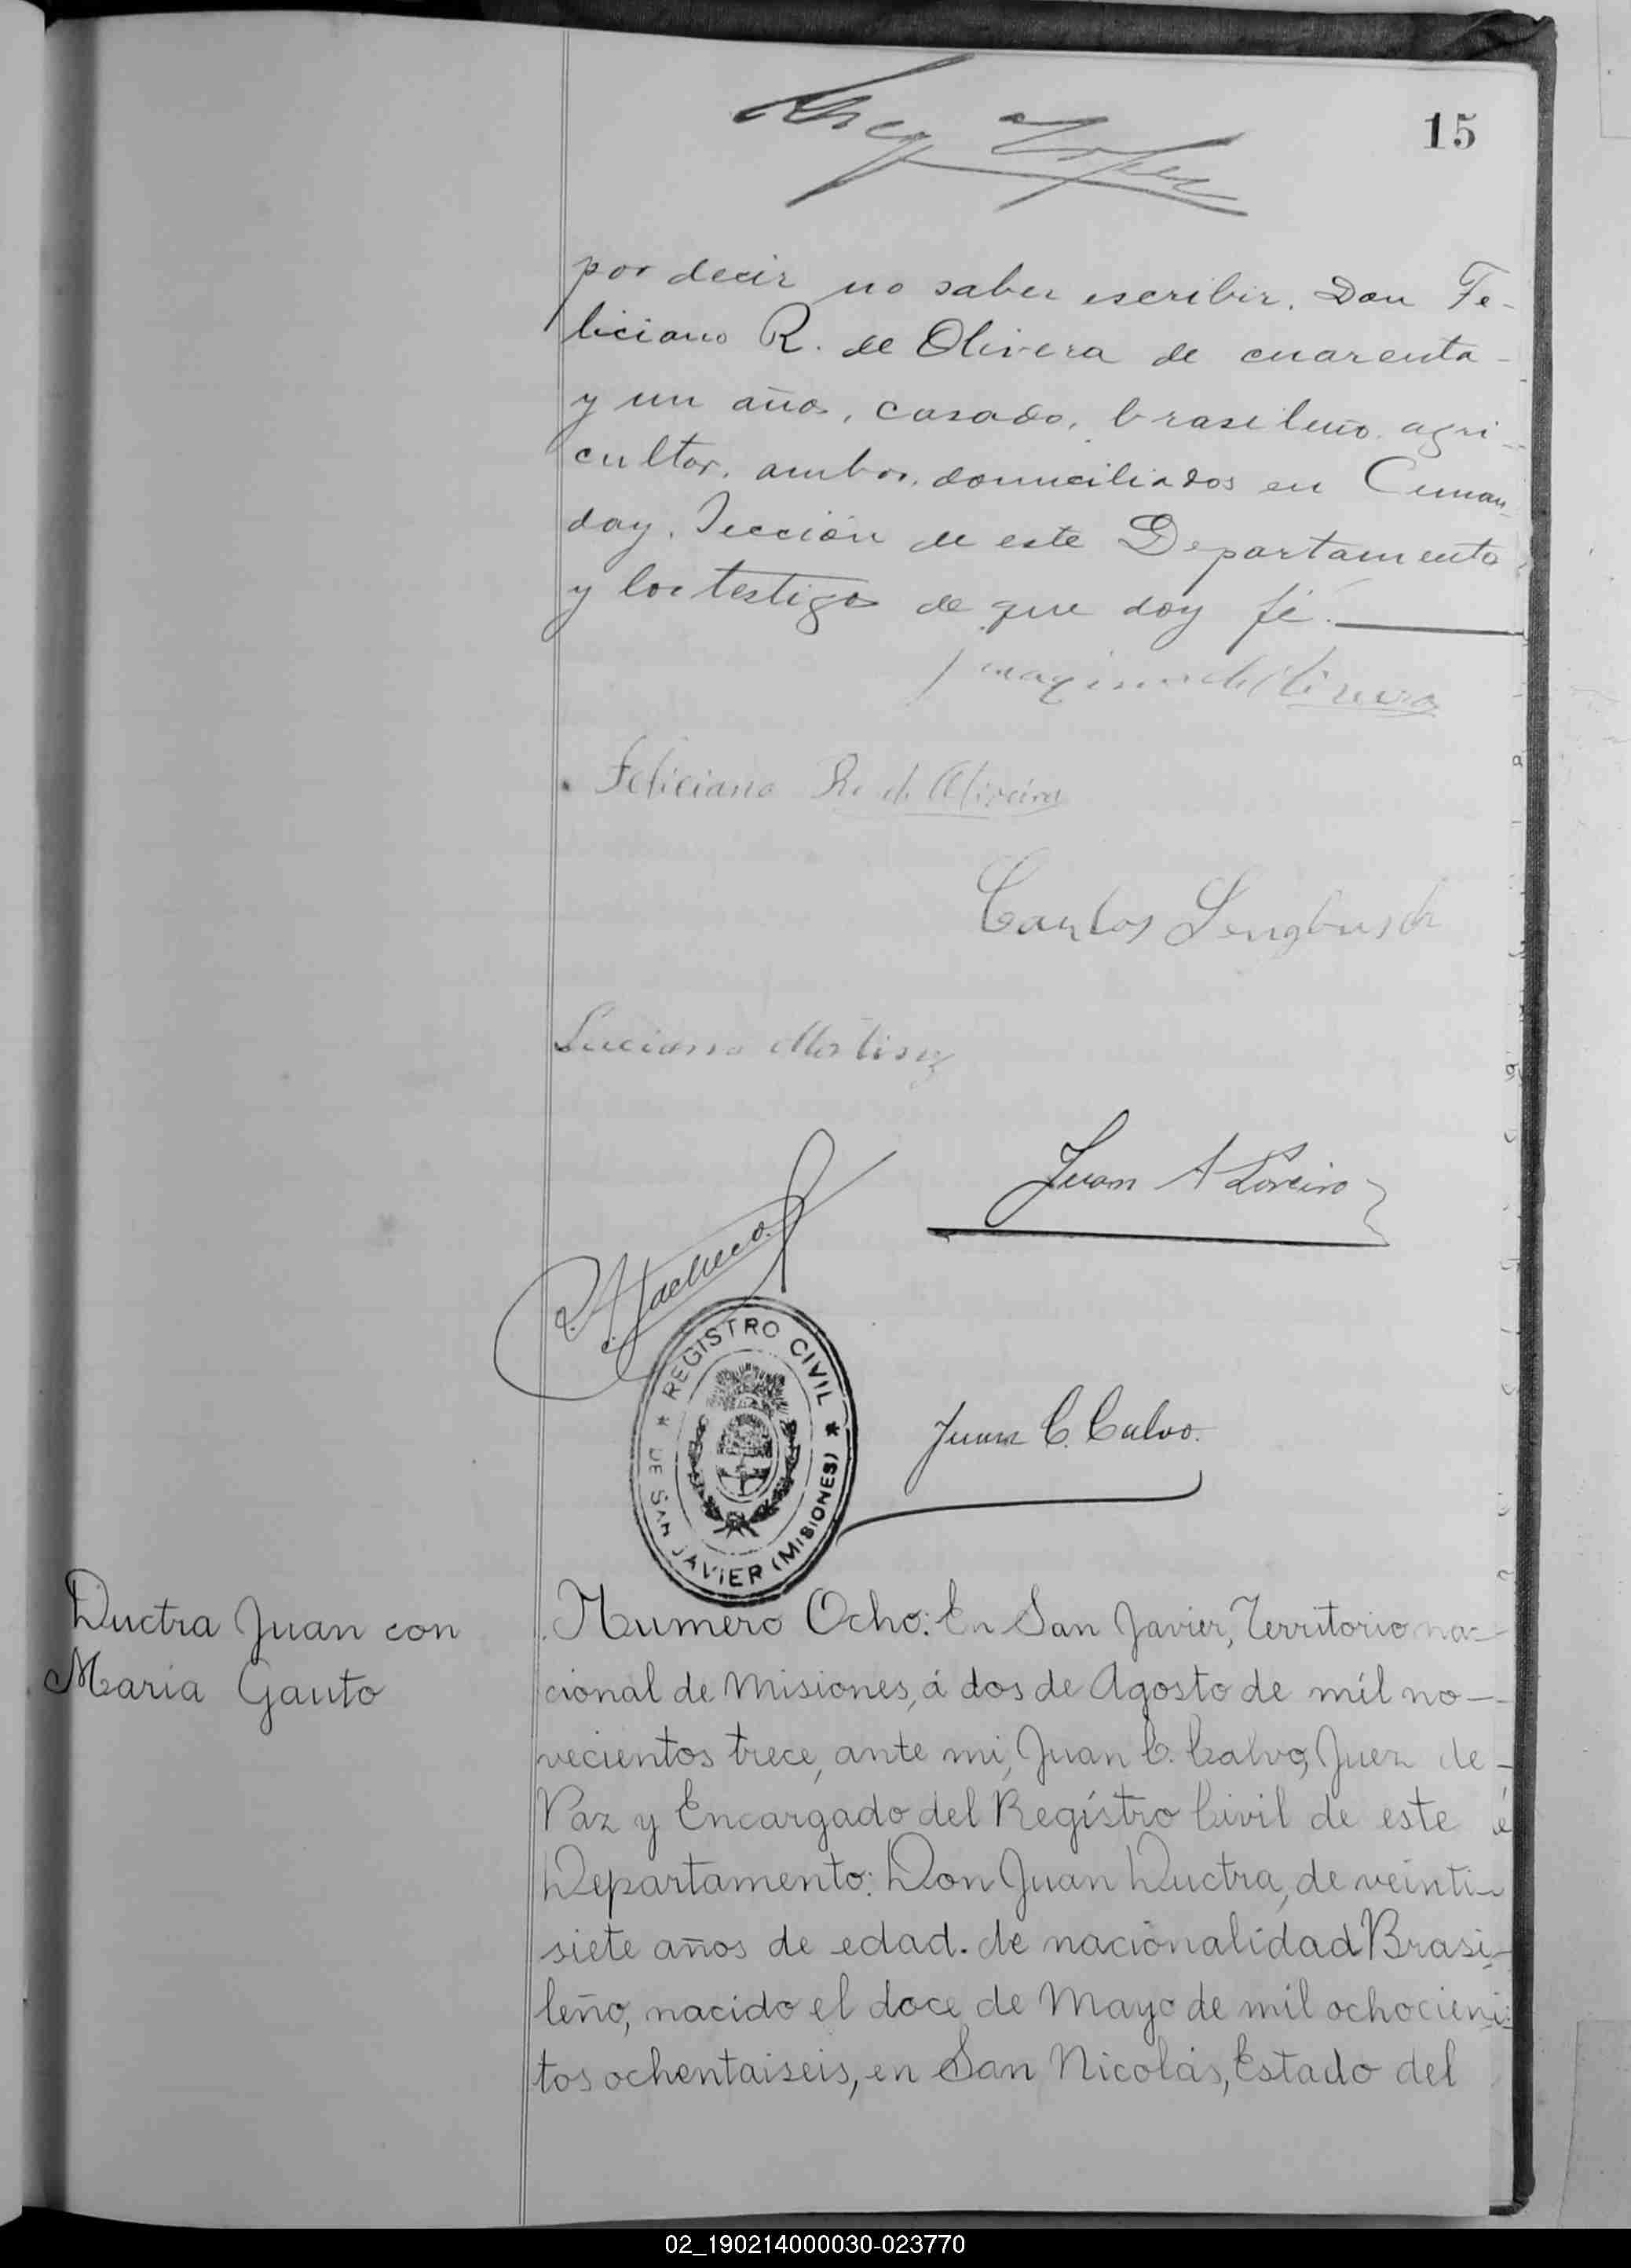 15
por decir no saber escribir. Don Fe-
liciano R. de Olivera de cuarenta-
y un años, casado, brasileño, agri-
cultor, ambos, domiciliados en Cuman-
day, Sección de este Departamento
y los testigos de que doy fé.
Feliciano R. de Oliveira
Carlos Lengbusch
Luciano Martinez
Juan A Loreiro
Pacheco
REGISTRO CIVIL
* DE SAN JAVIER (MISIONES) *
Juan C. Calvo.
Ductra Juan con
Maria Gauto
Numero Ocho: En San Javier, Territorio na-
cional de Misiones, á dos de Agosto de mil no-
vecientos trece, ante mi, Juan C. Calvo, Juez de-
Paz y Encargado del Registro Civil de este
Departamento: Don Juan Ductra, de veinti-
siete años de edad. de nacionalidad Brasi-
leño, nacido el doce de Mayo de mil ochocien-
tos ochentaiseis, en San Nicolás, Estado del
02_190214000030-023770